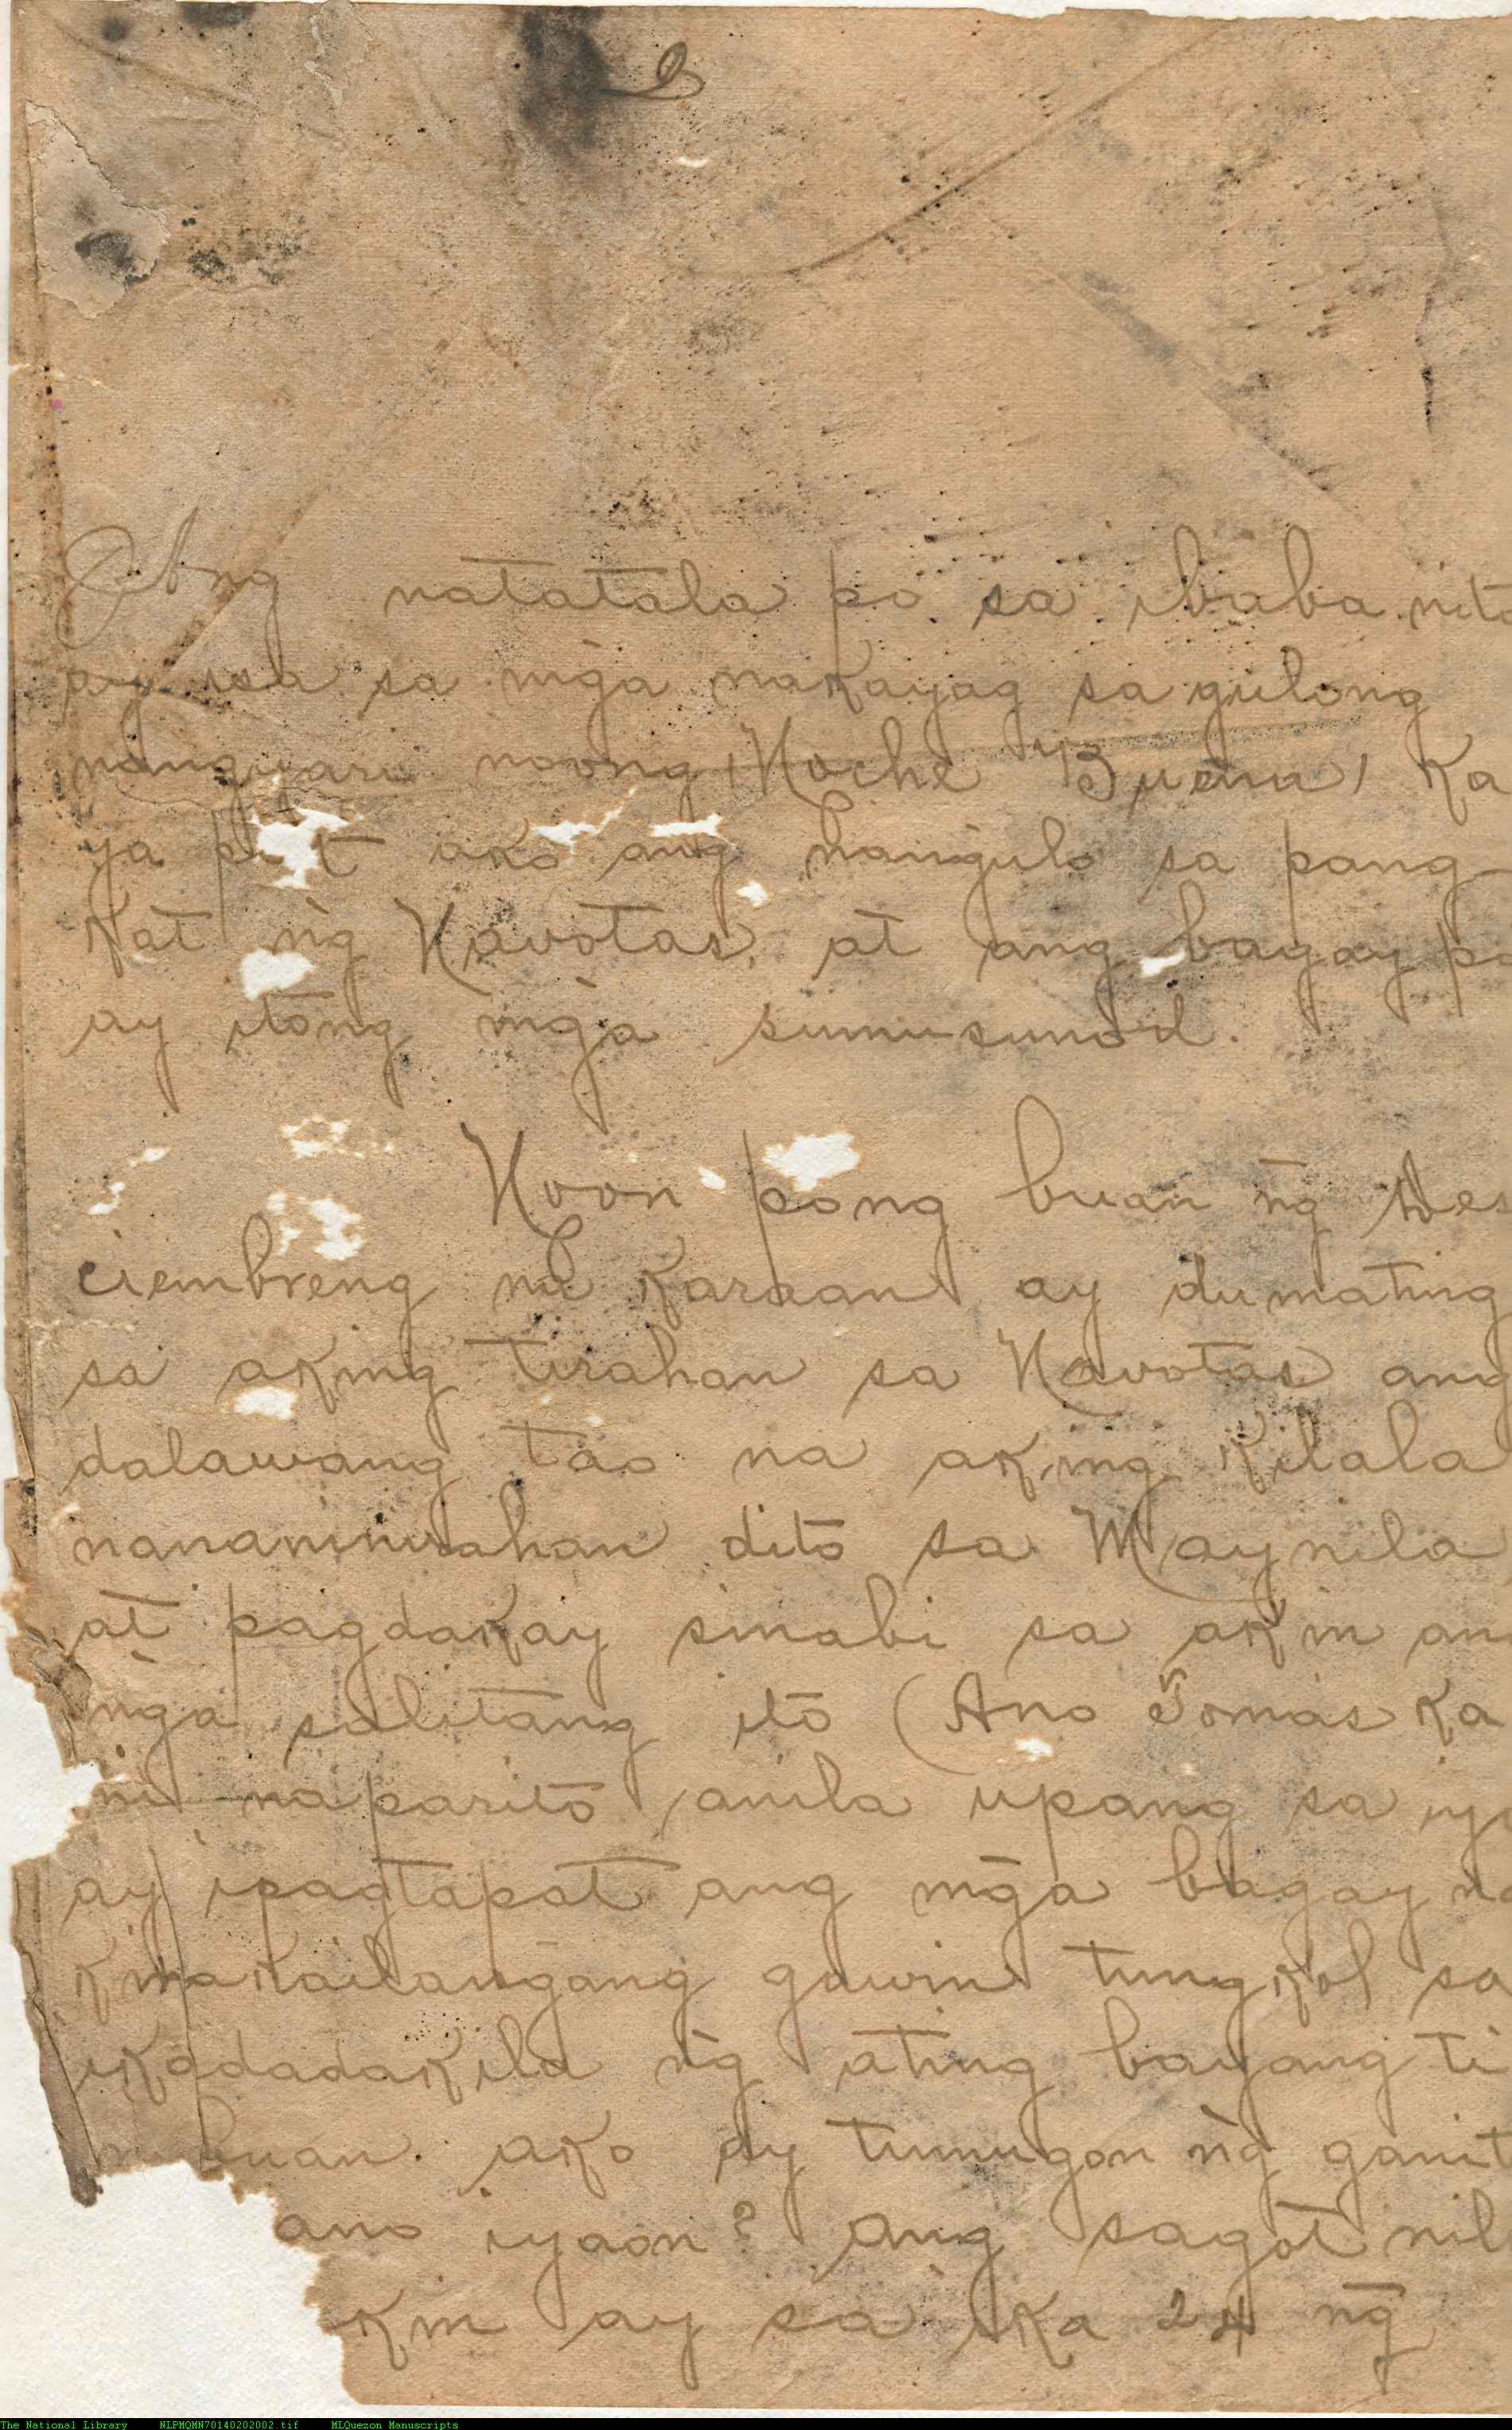 Ang natatala po sa ibaba nito
ay isa sa mg̃a nakayag sa gulong
nangyari noong "Noche Buena" ka
ya ako ang nang̃ulo sa pang-
kat ng̃ Navotas, at ang bagay po
ay itong mg̃a sumusunod.
Noon pong buan ng̃ Des
ciembreng na karaan ay dumating
sa aking tirahan sa Navotas ang
dalawang tao na aking kilala
nananinirahan dito sa Maynila,
at pagdakay sinabi sa akin ang
mg̃a salitang ito (Ano Tomas ka
mi naparito anila upang sa iyo
ay ipagtapat ang mg̃a bagay na
kinakailang̃ang gawin tungkol sa
ikadadakila ng̃ ating bayang ti
nubuan. ako ay tumugon ng̃ ganit
ano iyaon? Ang sagot nil
kin ay sa ika 24 ng̃
The National Library NLPMQMN70140202002.tif MLQuezon Manuscripts